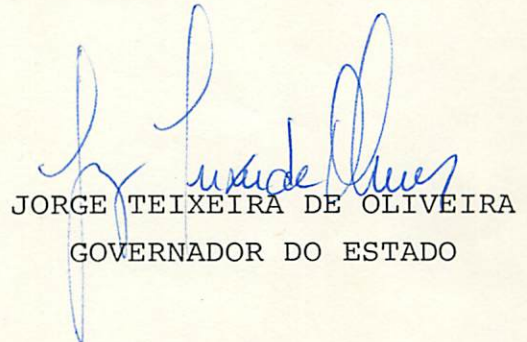 JORGE TEIXEIRA DE OLIVEIRA
GOVERNADOR DO ESTADO